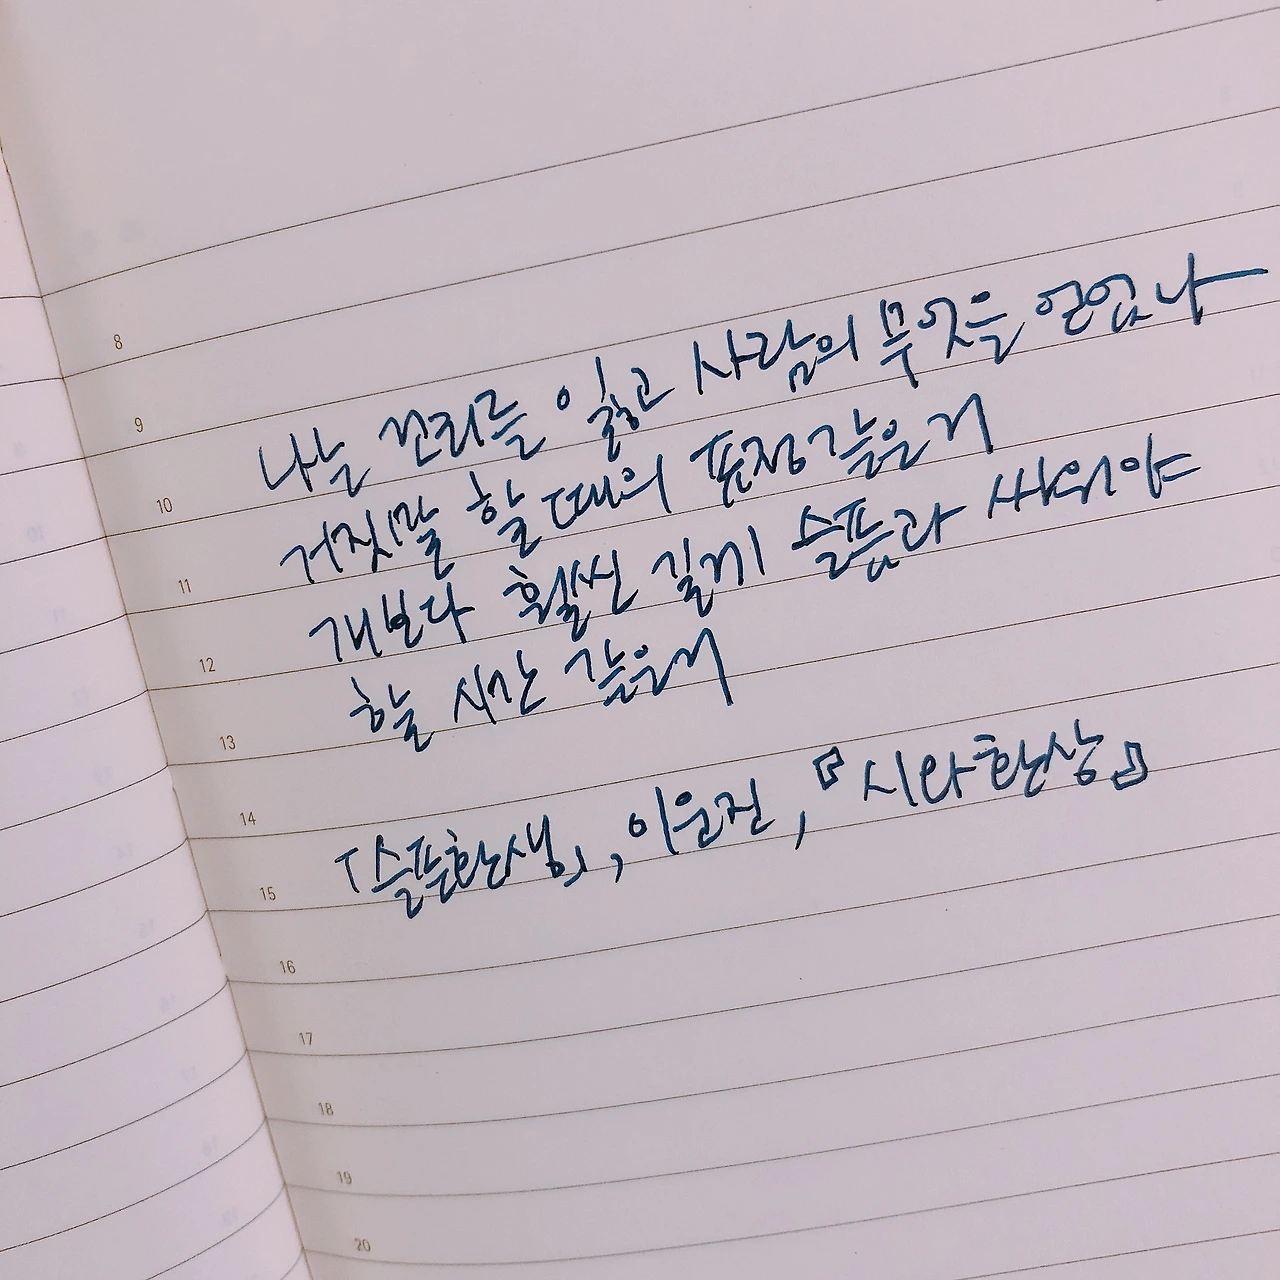 나는 꼬리를 잃고 사람의 무엇을 얻었나
거짓말 할 때의 표정 같은 거
개보다 훨씬 길게 슬픔과 싸워야
할 시간 같은 거
「슬픈환생」, 이운진, 『시와환상』
8
9
10
11
12
13
14
15
16
17
18
19
20